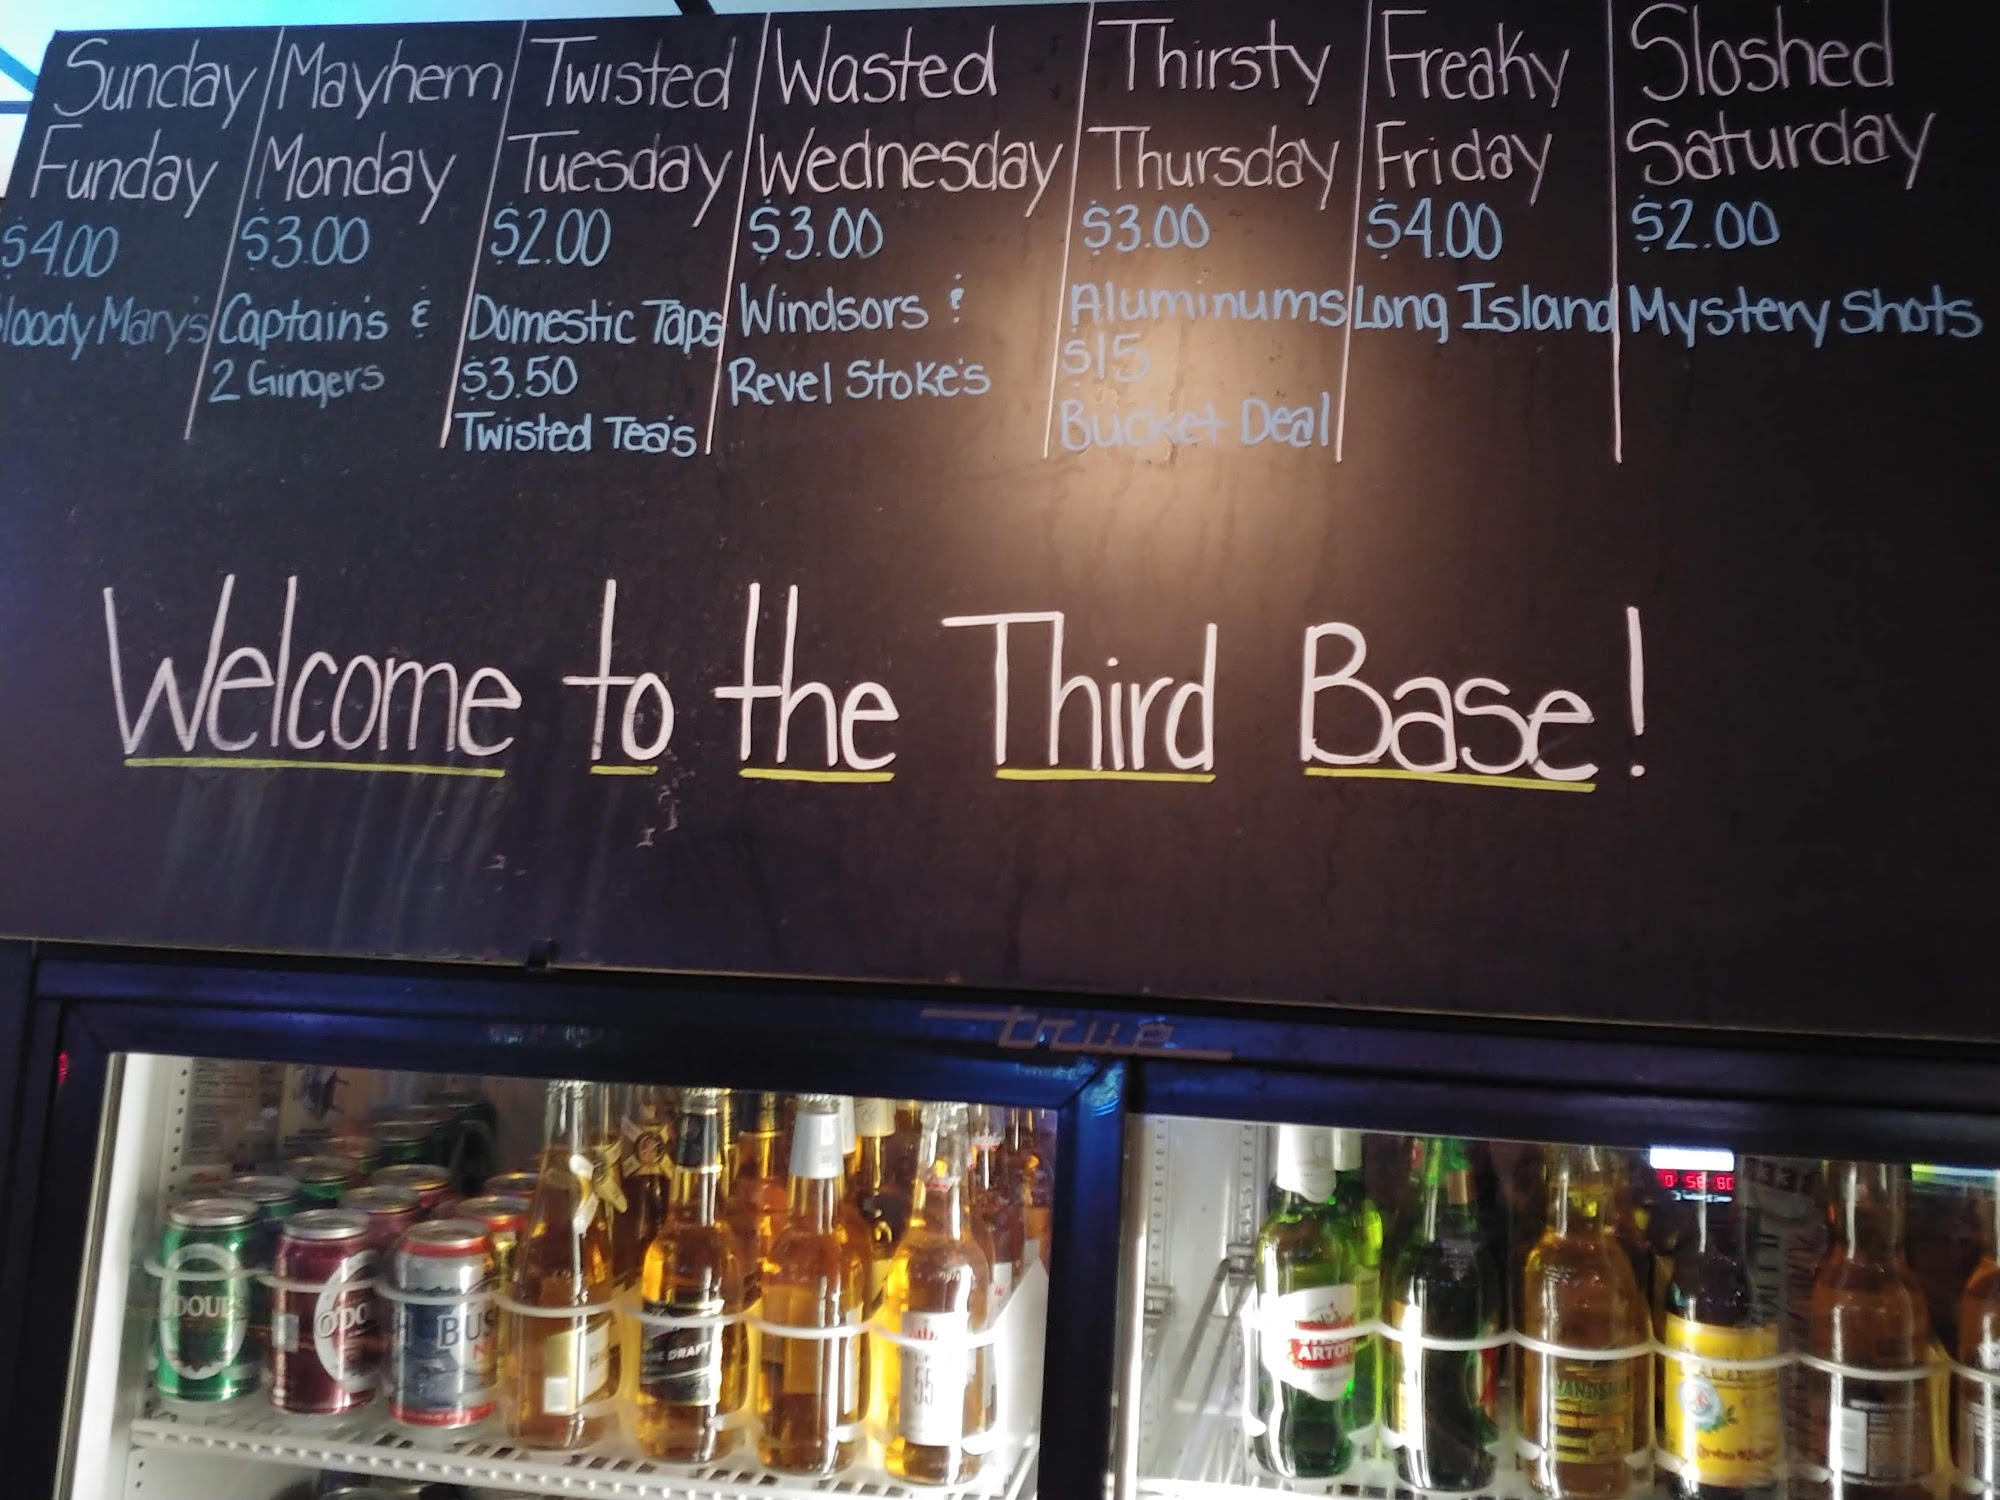 Sunday
Funday
$4.00
loody Mary's
Mayhem
Monday
$3.00
Captain's &
2 Gingers
Twisted
Tuesday
$2.00
Domestic Taps
$3.50
Twisted Tea's
Wasted
Wednesday
$3.00
Windsors &
Revel Stoke's
Thirsty
Thursday
$3.00
Aluminums
$15
Bucket Deal
Freaky
Friday
$4.00
Long Island
Sloshed
Saturday
$2.00
Mystery Shots
Welcome to the Third Base!
true
DOUL'S
ODO
BUS
DRAFT
55
ARTOI